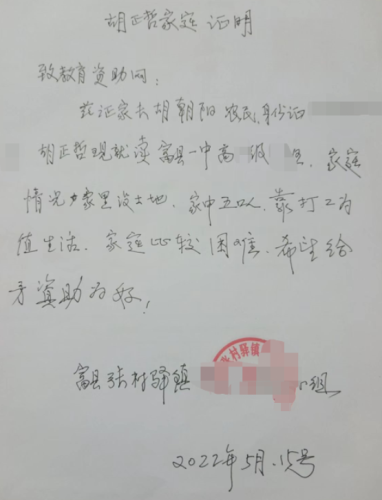 胡正哲家庭证明
致教育资助网:
兹证家长胡朝阳农民,身份证
胡正哲现就读富县一中高 级 生,家庭
情况为家里没土地,家中五口人,靠打工为
值生活,家庭比较困难,希望给
予资助为好!
村驿镇
富县张村驿镇 组
2022年5月.15号